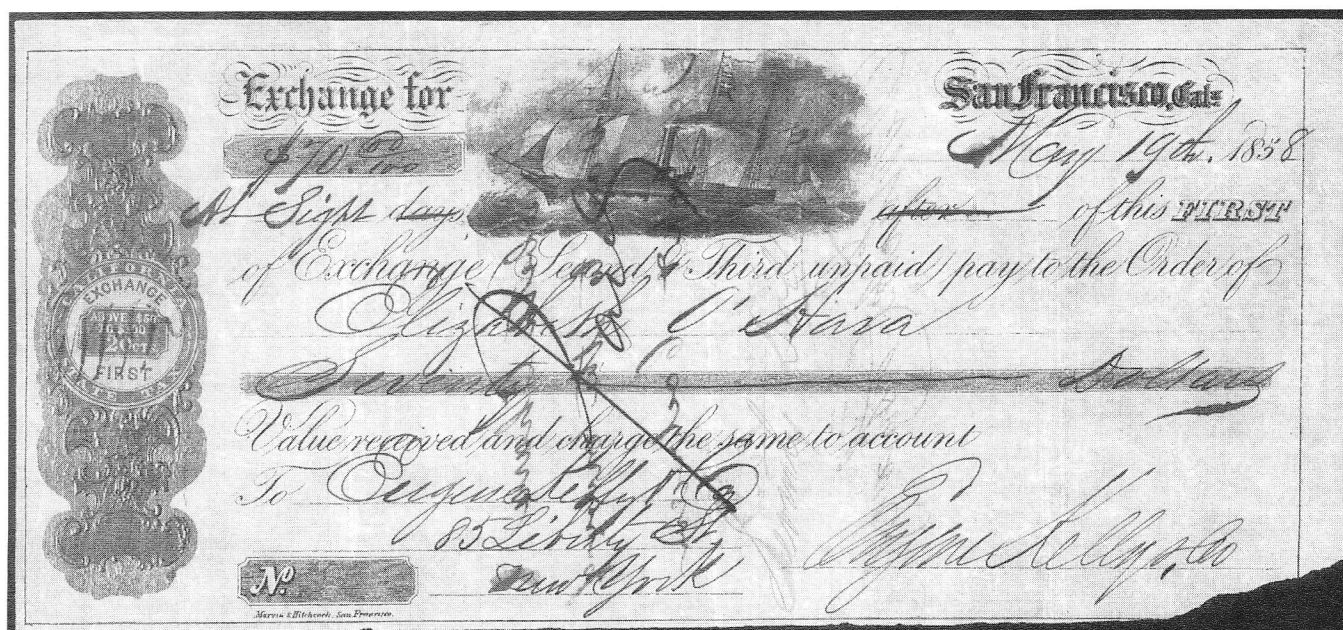 Exchange for
San Francisco, Cal:
$70 00/100
May 19th. 1858
At Sight days after of this FIRST
of Exchange (Second & Third unpaid) pay to the Order of
Elizabeth O'Hara
Seventy Dollars
Value received and charge the same to account
To Eugene Kelly & Co
85 Liberty St.
New York
Eugene Kelly & Co
No.
Marvin & Hitchcock, San Francisco.
CALIFORNIA
EXCHANGE
FIRST
STATE